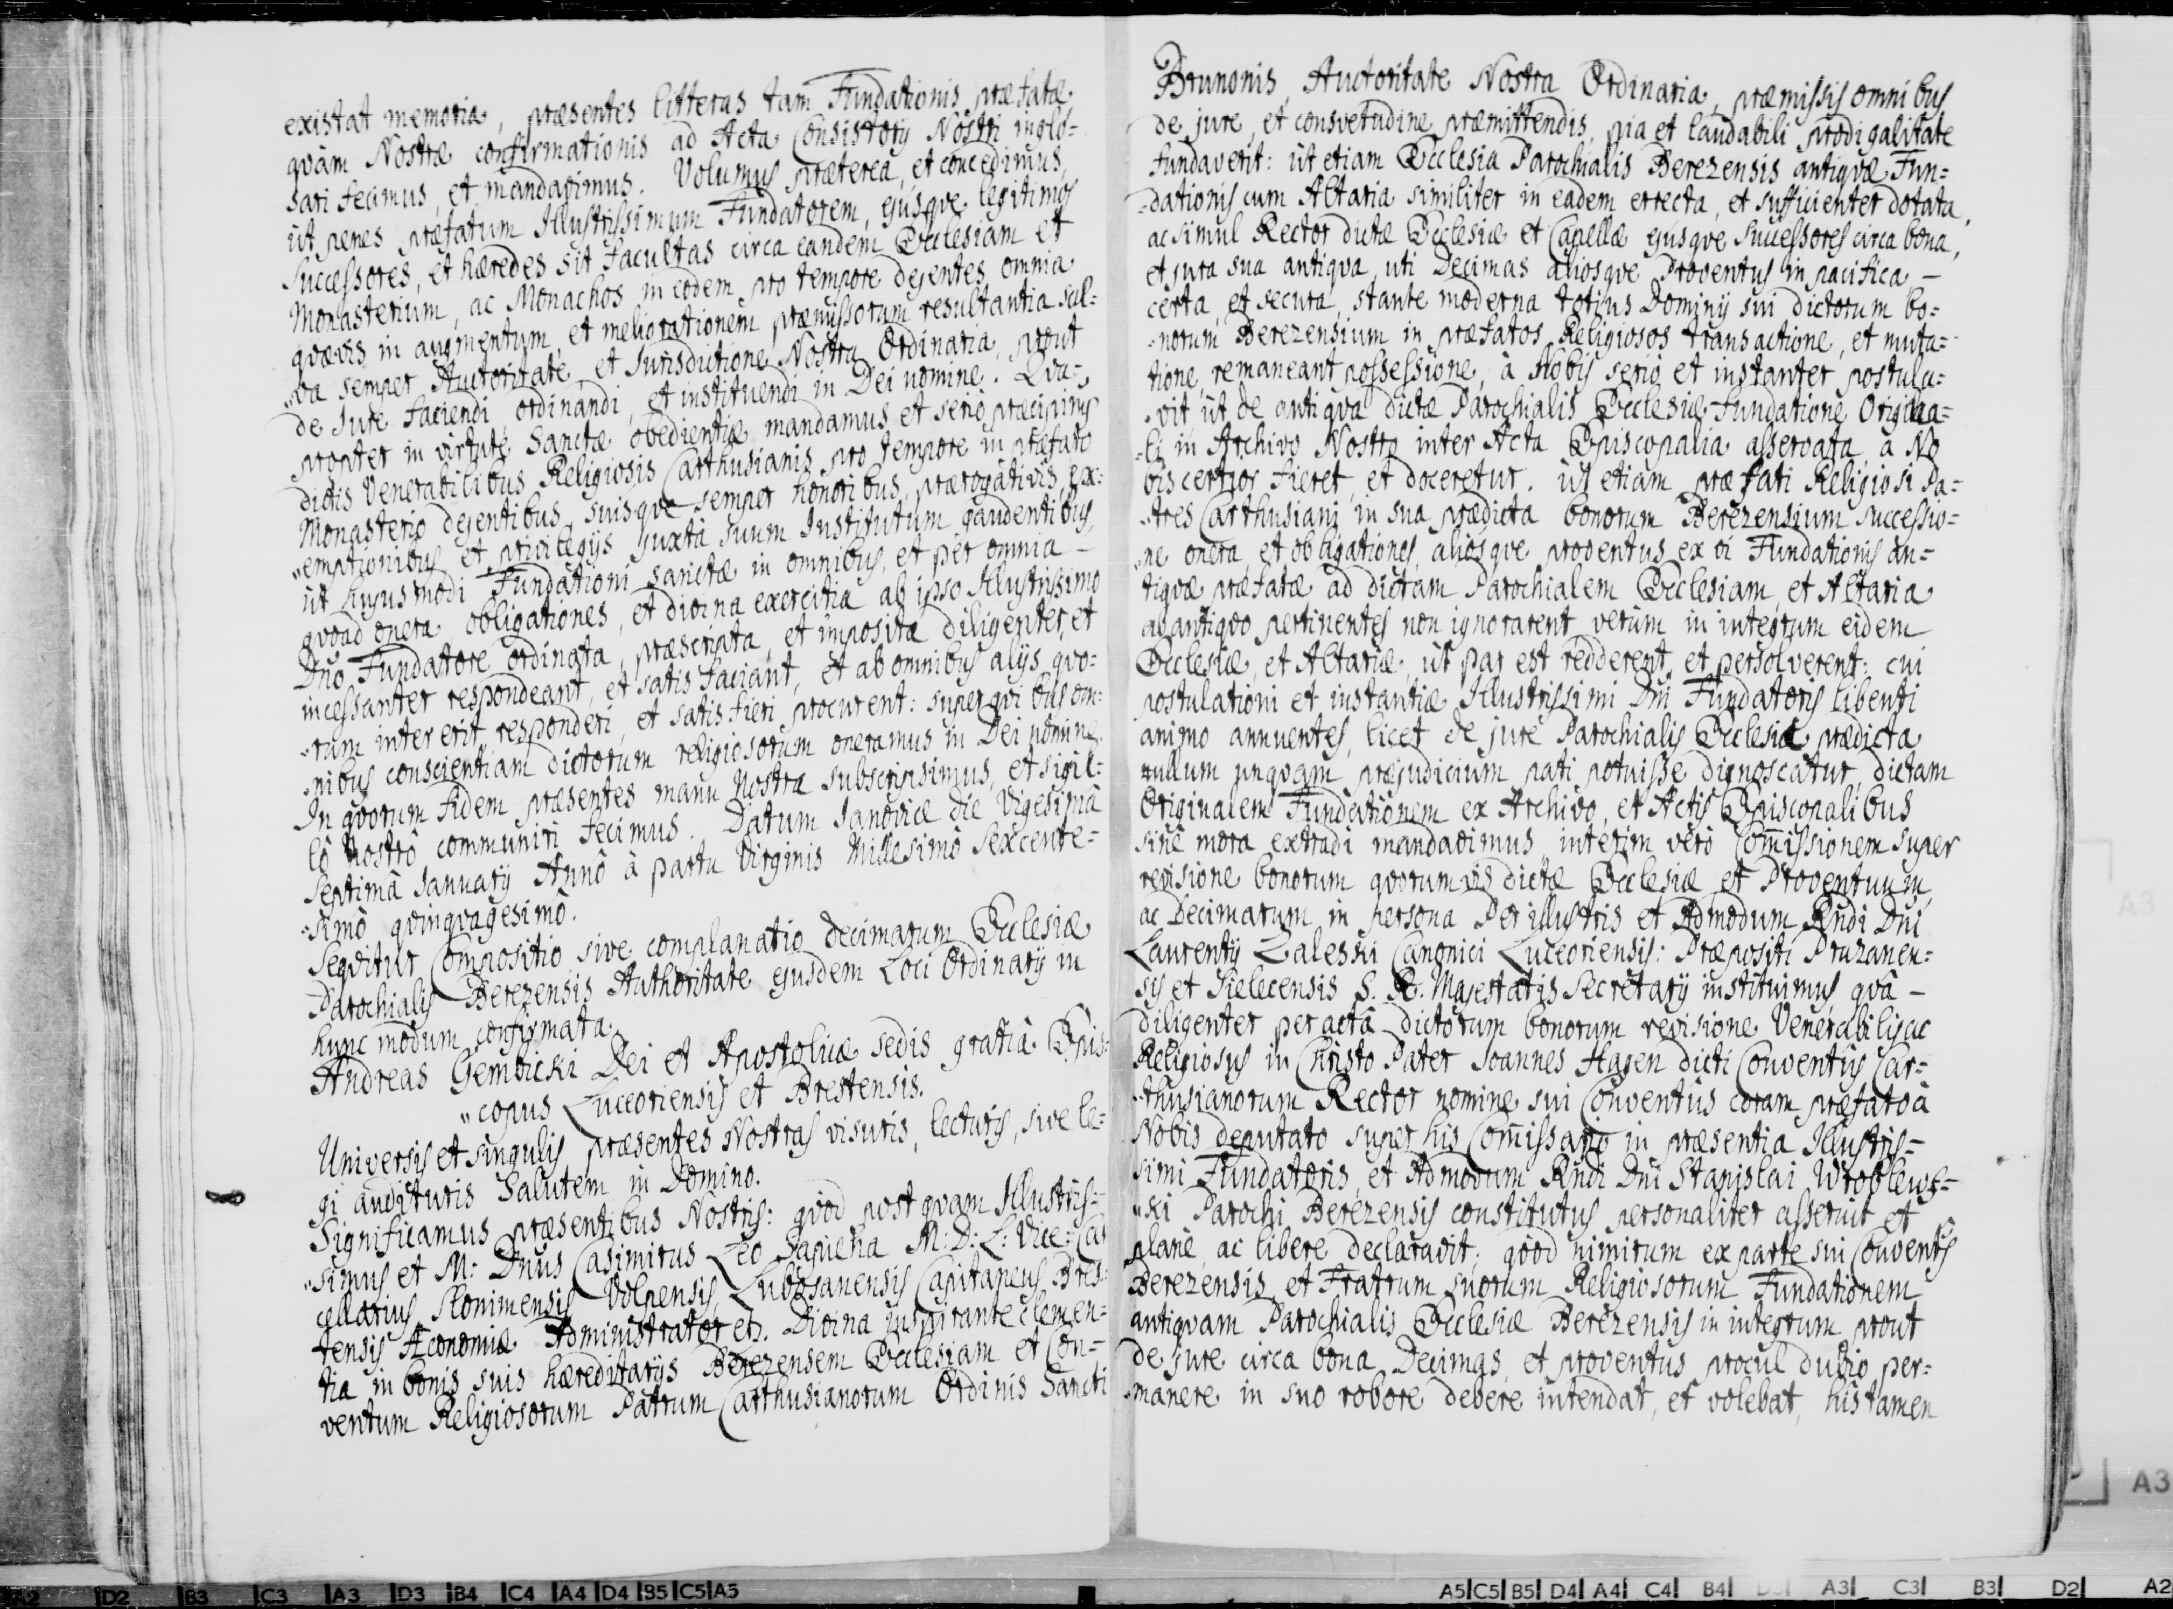 existat memoria, præsentes litteras tam Fundationis præfatæ,
qvàm Nostræ confirmationis ad Acta Consistorÿ Nostri inglo-
sari fecimus, et mandavimus. Volumus præterea, et concedimus,
ut penes præfatum Illustrissimum Fundatorem, ejusqve legitimos
Successores, et hæredes sit facultas circa eandem Ecclesiam et
Monasterium, ac Monachos in eodem pro tempore degentes omnia
qvævis in augmentum, et meliorationem præmissorum resultantia sal-
va semper Auctoritate, et Jurisdictione Nostra Ordinaria, prout
de Jure faciendi, ordinandi, et instituendi in Dei nomine. Qva-
propter in virtute Sanctæ obedientiæ mandamus, et seriò præcipimus
dictis Venerabilibus Religiosis Carthusianis pro tempore in præfato
Monasterio degentibus, suisqve semper honoribus, prærogativis, ex-
emptionibus, et privilegÿs juxta suum Institutum gaudentibus,
ut hujusmodi Fundationi sanctæ in omnibus, et per omnia –
qvoad onera, obligationes, et divina exercitia ab ipso Illustrissimo
Dño Fundatore ordinata, præscripta, et imposita diligenter, et
incessanter respondeant, et satis faciant, et ab omnibus alÿs, qvo-
rum intererit responderi, et satis fieri procurent: super qvibus om-
nibus conscientiam dictorum religiosorum oneramus in Dei nomine.
In qvorum fidem præsentes manu Nostra subscripsimus, et sigil-
lô Nostrô communiri fecimus. Datum Janoviæ die Vigesimâ
Septimâ Januarÿ Annô à partu Virginis Millesimô Sexcente-
simô qvinqvagesimô.
Seqvitur Compositio sive complanatio decimarum Ecclesiæ
Parochialis Berezensis Authoritate ejusdem Loci Ordinarÿ in
hunc modum confirmata.
Andreas Gembicki Dei et Apostolicæ sedis gratiâ Epis-
copus Luceoriensis et Brestensis.
Universis et singulis præsentes Nostras visuris, lecturis, sive le-
gi audituris Salutem in Domino.
Significamus præsentibus Nostris: qvod postqvam Illustris-
simus et M: Dñus Casimirus Leo Sapieha M: D: L: Vice: Can
cellarius, Slonimensis, Volpensis, Lubosanensis Capitaneus, Bres-
tensis Æconomiæ Administrator etz. Divina inspirante clemen-
tia in bonis suis hæreditarÿs Berezensem Ecclesiam et Con-
ventum Religiosorum Patrum Carthusianorum Ordinis Sancti
Brunonis, Auctoritate Nostra Ordinaria, præmissis omnibus
de jure, et consvetudine præmittendis, pia et laudabili prodigalitate
fundaverit: ut etiam Ecclesia Parochialis Berezensis antiqvæ Fun-
dationis cum Altaria similiter in eadem errecta, et sufficienter dotata,
ac simul Rector dictæ Ecclesiæ et Capellæ ejusqve Successores circa bona,
et jura sua antiqva, uti Decimas aliosqve Proventus in pacifica –
certa, et secura, stante moderna totius Dominÿ sui dictorum bo-
norum Berezensium in præfatos Religiosos transactione, et muta-
tione, remaneant possessione, à Nobis seriò et instanter postula-
vit, ut de antiqva dictæ Parochialis Ecclesiæ Fundatione Origina-
li in Archivo Nostro inter Acta Episcopalia asservata, à No
bis certior fieret, et doceretur. ut etiam præfati Religiosi Pa-
tres Carthusiani in sua prædicta bonorum Berezensium successio-
ne onera, et obligationes, aliosqve proventus, ex vi Fundationis an-
tiqvæ præfatæ ad dictam Parochialem Ecclesiam, et Altaria
ab antiqvo pertinentes non ignorarent, verùm in integrum eidem
Ecclesiæ, et Altariæ, ut par est redderent, et persolverent: cui
postulationi et instantiæ Illustrissimi Dñi Fundatoris libenti
animo annuentes, licet de jure Parochialis Ecclesia prædicta
nullum unqvam præjudicium pati potuisse dignoscatur, dictam
Originalem Fundationem ex Archivo, et Actis Episcopalibus
sine mora extradi mandavimus, interim verò Com̃issionem super
revisione bonorum qvorumvis dictæ Ecclesiæ et Proventuum,
ac Decimarum in persona Per illustris et Admodum Rñdi Dñi
Laurentÿ Zaleski Canonici Luceoriensis: Præpositi Pruzanen-
sis et Sielecensis S. R. Majestatis Secretarÿ instituimus, qvâ –
diligenter peractâ dictorum bonorum revisione Venerabilis ac
Religiosus in Christo Pater Joannes Hagen dicti Conventûs Car-
thusianorum Rector nomine sui Conventûs coram præfato à
Nobis deputato super his Com̃issario in præsentia Illustris-
simi Fundatoris, et Admodum Rñdi Dñi Stanislai Wroblews-
ki Parochi Berezensis constitutus personaliter asseruit et
planè, ac liberè declaravit; qvod nimirum ex parte sui Conventûs
Berezensis, et Fratrum suorum Religiosorum Fundationem
antiqvam Parochialis Ecclesiæ Berezensis in integrum, prout
de jure circa bona, Decimas, et proventus procul dubio per-
manere in suo robore debere intendat, et volebat, his tamen
A2 D2 B3 C3 A3 D3 B4 C4 A4 D4 B5 C5 A5
A5 C5 B5 D4 A4 C4 B4 D3 A3 C3 B3 D2 A2
A3
A3